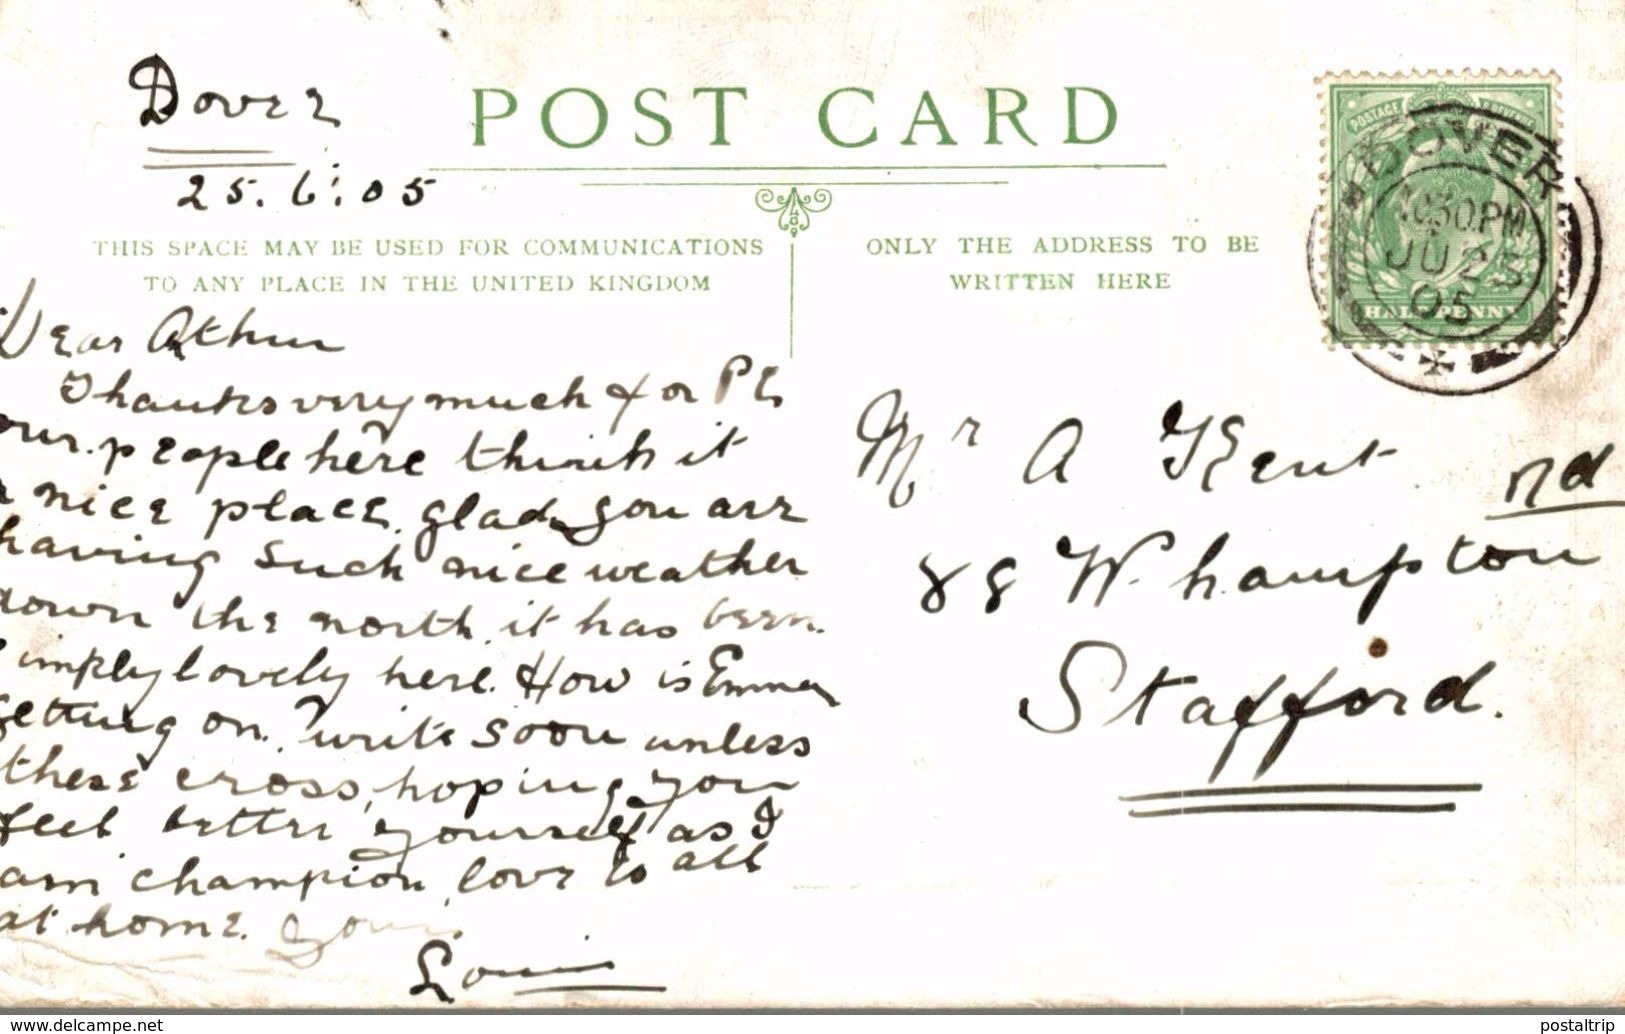 Dover
25.6.05
POST CARD
THIS SPACE MAY BE USED FOR COMMUNICATIONS
TO ANY PLACE IN THE UNITED KINGDOM
ONLY THE ADDRESS TO BE
WRITTEN HERE
POSTAGE & REVENUE
HALFPENNY
DOVER
10.30.PM
JU 25
05
Dear Arthur
Thanks very much for PC,
our people here think it
a nice place, glad you are
having such nice weather
down the north, it has been
simply lovely here. How is Emma
getting on, write soon unless
these cross, hoping you
feel better yourself as I
am champion, love to all
at home. Your
Louis
Mr A Kent
88 W.hampton Rd
Stafford.
www.delcampe.net
postaltrip